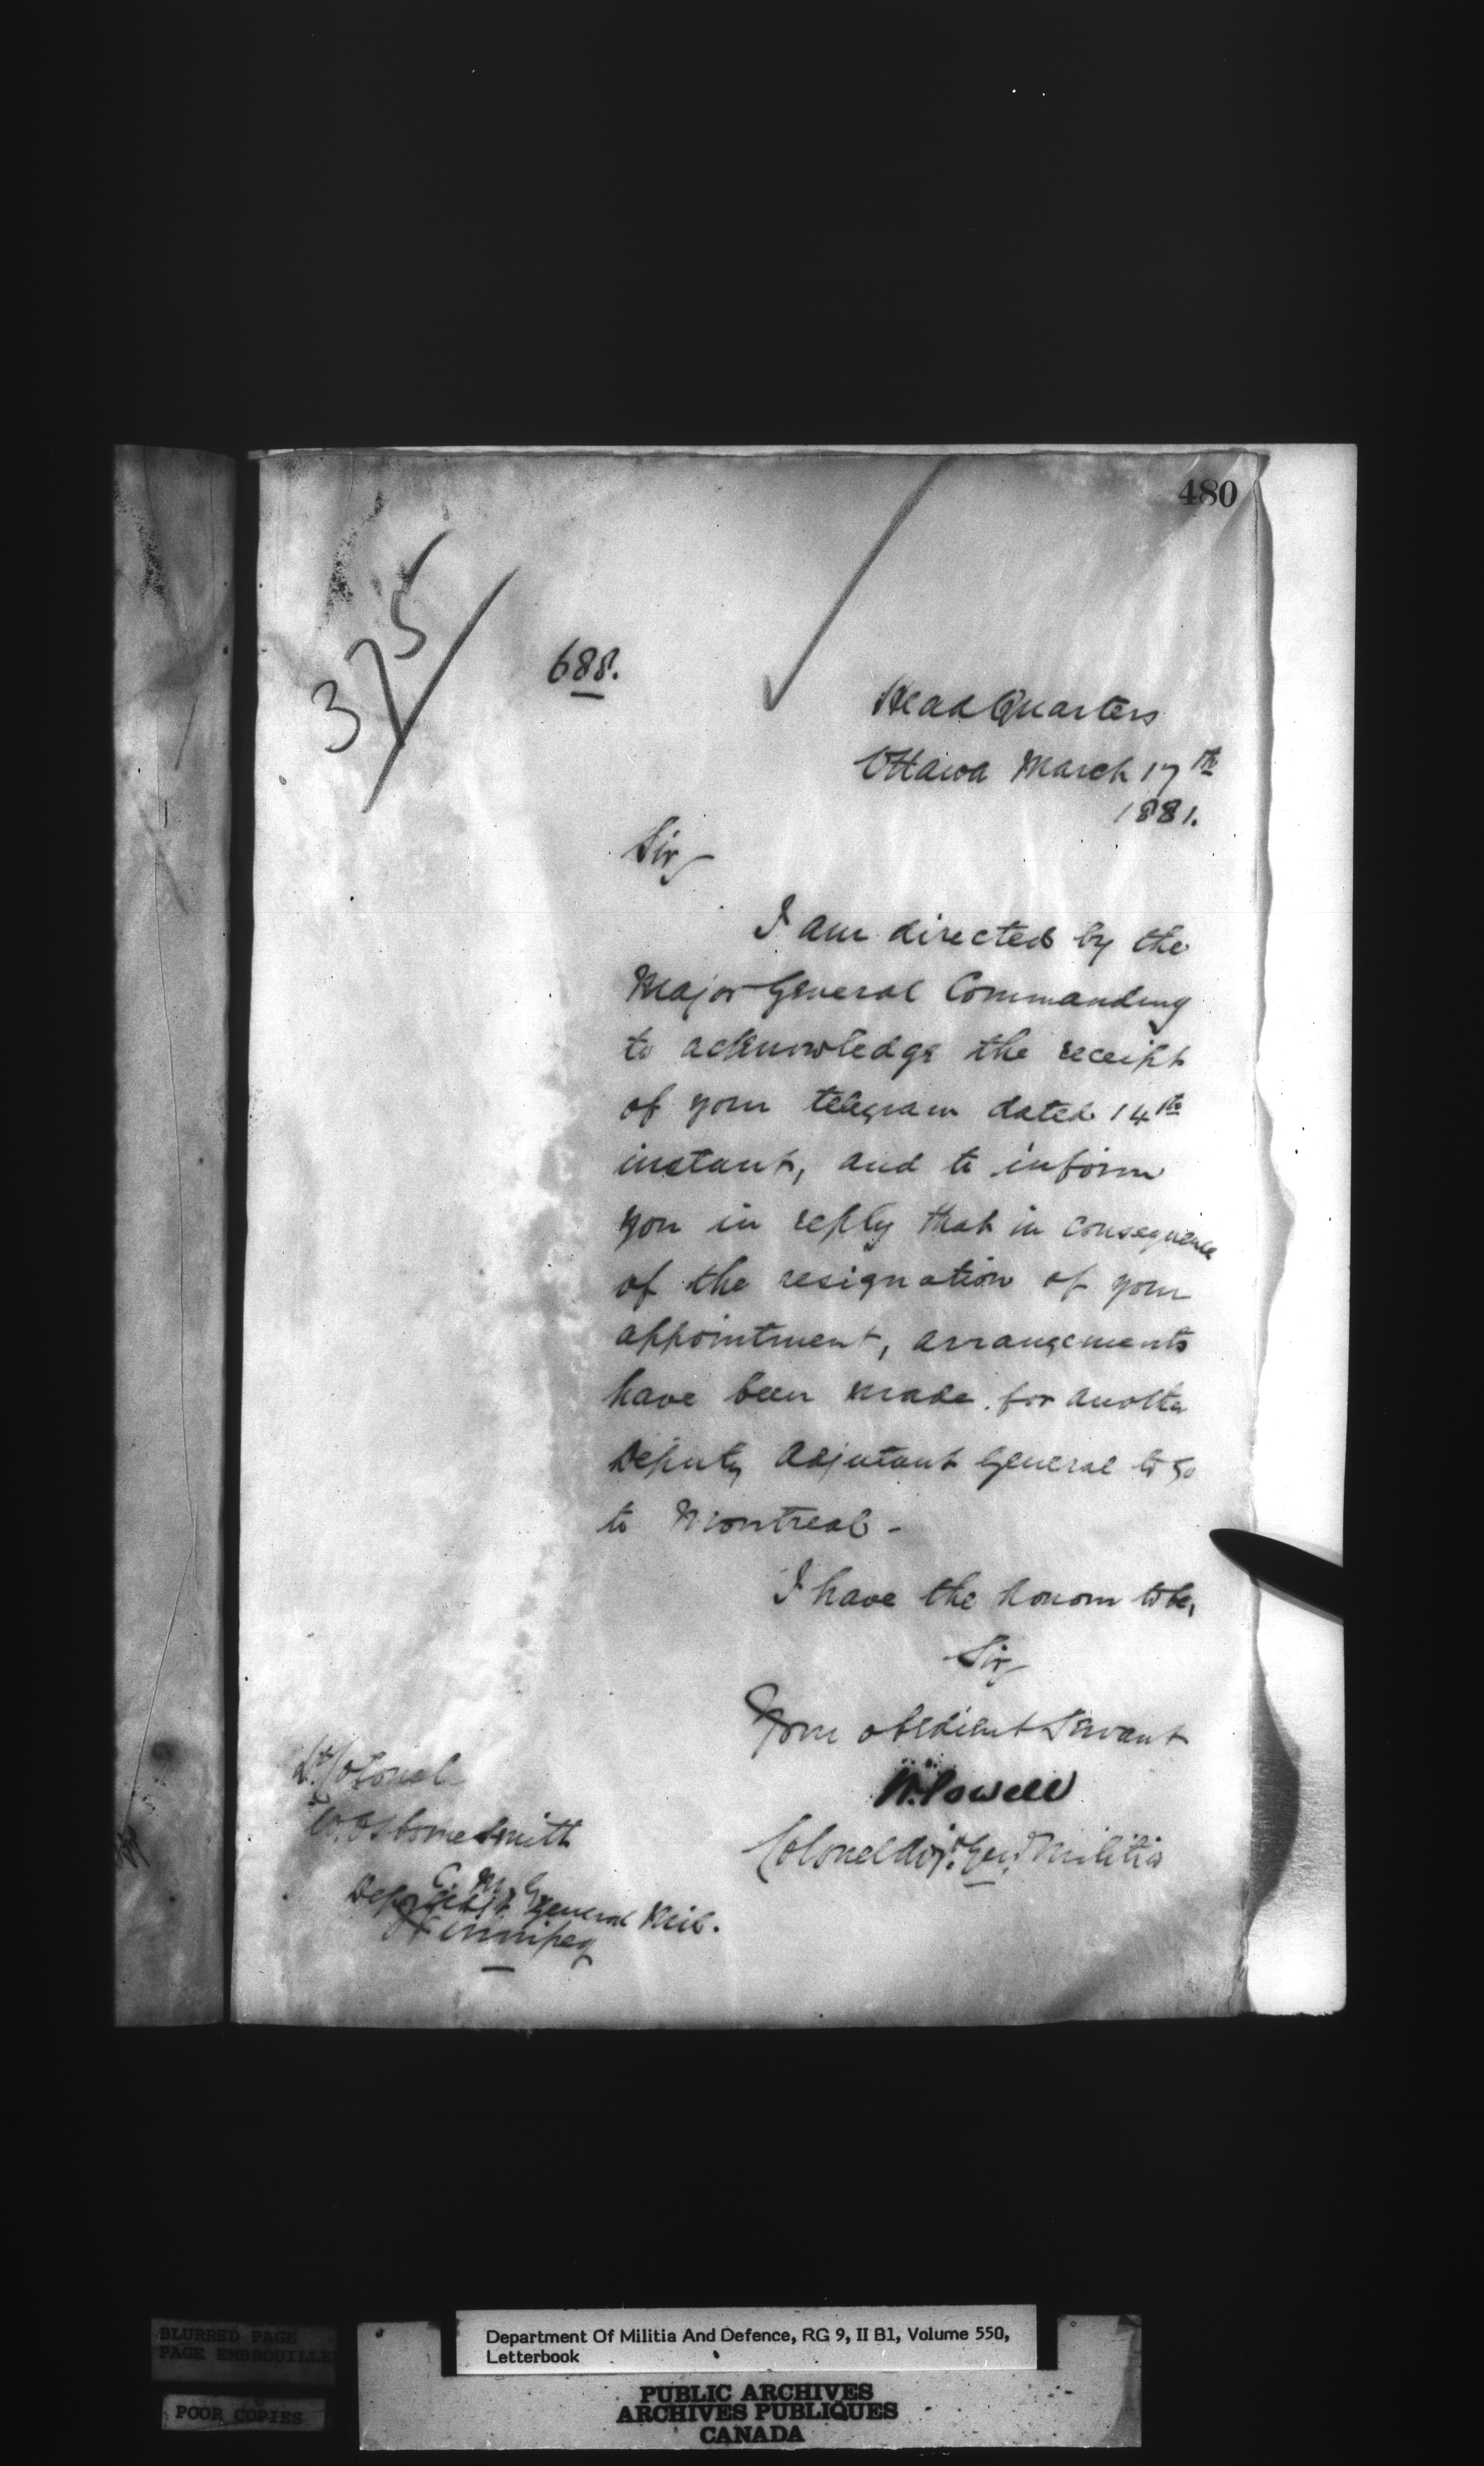 480
375
688.
Head Quarters
Ottawa March 17th
1881.
Sir,
I am directed by the
Major General Commanding
to acknowledge the receipt
of your telegram dated 14th
instant, and to inform
you in reply that in consequence
of the resignation of your
appointment, arrangements
have been made for another
Deputy Adjutant General to go
to Montreal -
I have the honour to be,
Sir,
Your obedient Servant
W. Powell
Colonel Adjt. Genl. Militia
Lt. Colonel
W. Osborne Smith
C. M. G.
Depy Adjt. General Mil.
Winnipeg
BLURRED PAGE
PAGE EMBROUILLE
POOR COPIES
Department Of Militia And Defence, RG 9, II B1, Volume 550,
Letterbook
PUBLIC ARCHIVES
ARCHIVES PUBLIQUES
CANADA